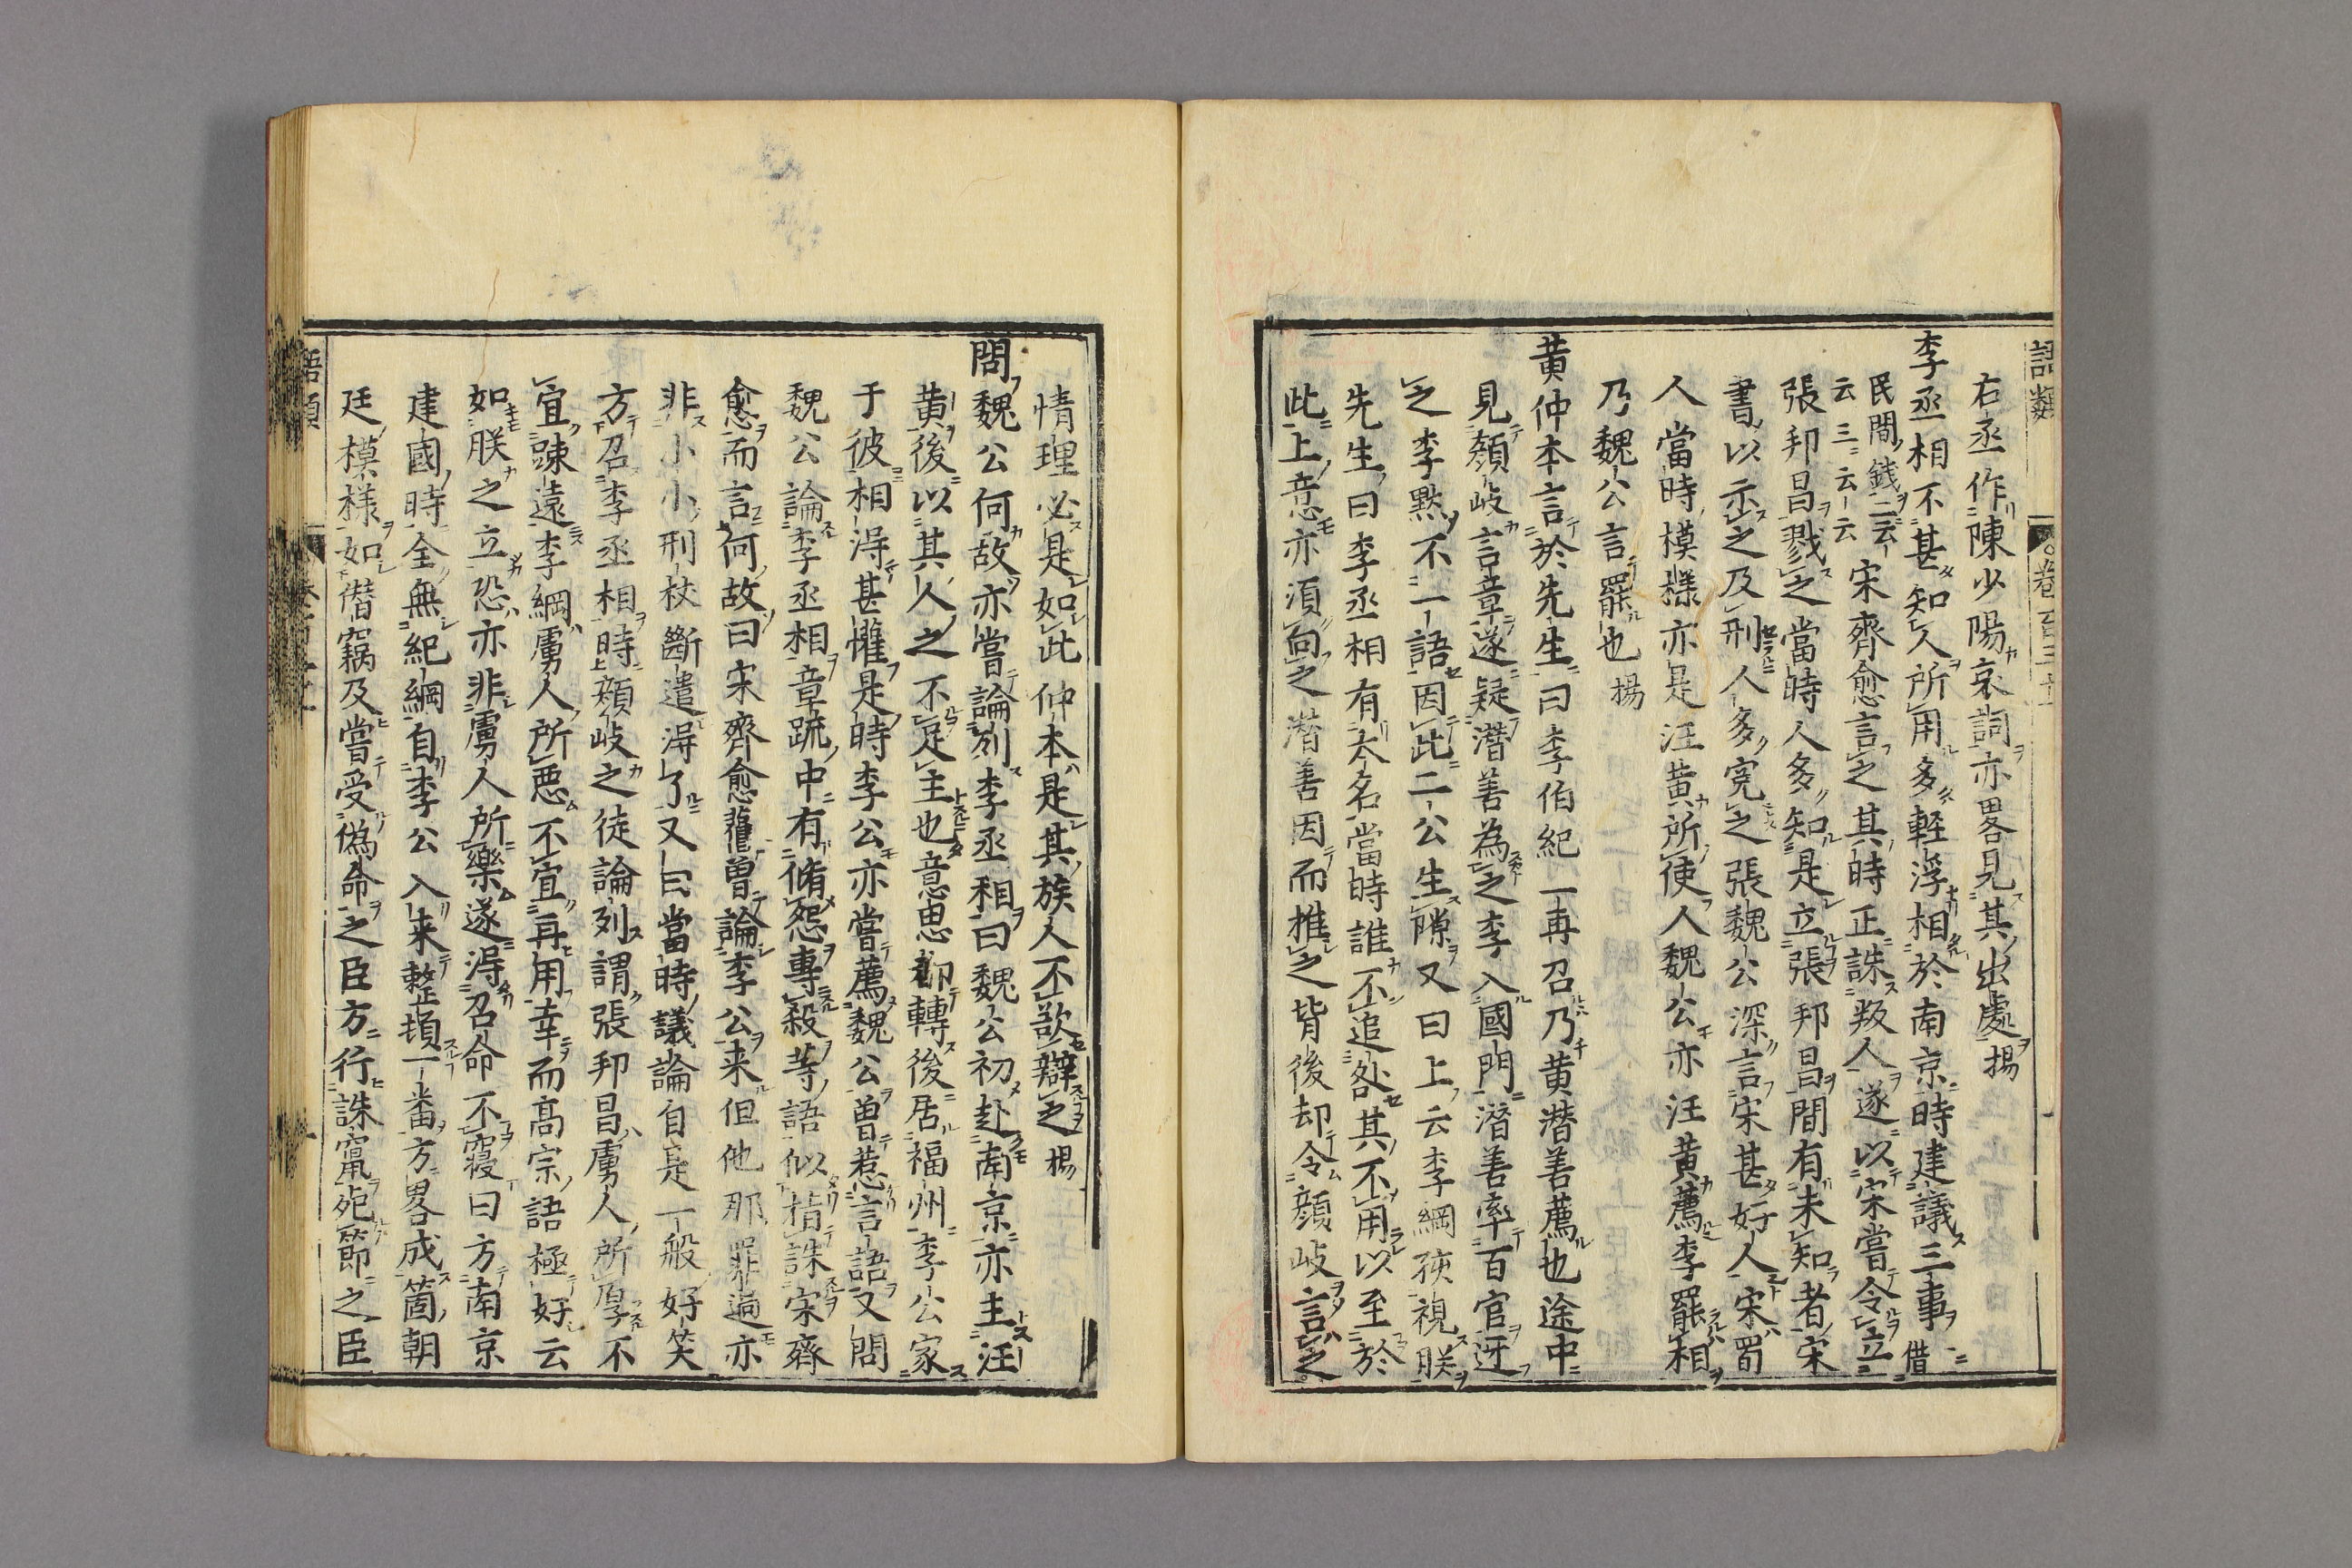 語類
卷百三十一
右丞作陳少陽哀詞亦畧見其出處揚
李丞相不甚知人所用多輕浮相於南京時建議三事借
民間錢二云云三云云宋齊愈言之其時正誅叛人遂以宋嘗令立
張邦昌戮之當時人多知是立張邦昌間有未知者宋
書以示之及刑人多寃之張魏公深言宋甚好人宋蜀
人當時模樣亦是汪黄所使人魏公亦汪黄薦李罷相
乃魏公言罷也揚
黄仲本言於先生曰李伯紀一再召乃黄潜善薦也途中
見顏岐言章遂疑潜善為之李入國門潜善率百官迓
之李黙不一語因此二公生隙又曰上云李綱孩視朕
先生曰李丞相有大名當時誰不追咎其不用以至於
此上意亦須向之潜善因而推之背後却令顏岐言之
情理必是如此仲本是其族人不欲辯之揚
問魏公何故亦嘗論列李丞相曰魏公初赴南京亦主汪
黄後以其人之不足主也意思却轉後居福州李公家
于彼相淂甚懽是時李公亦嘗薦魏公曽惹言語又問
魏公論李丞相章疏中有脩怨專殺等語似指誅宋齊
愈而言何故曰宋齊愈舊曽論李公来但他那罪過亦
非小小刑杖斷遣淂了又曰當時議論自是一般好笑
方召李丞相時顏岐之徒論列謂張邦昌虜人所厚不
宜踈遠李綱虜人所悪不宜再用幸而高宗語極好云
如朕之立恐亦非虜人所樂遂淂召命不寢曰方南京
建國時全無紀綱自李公入来整頓一番方畧成箇朝
廷模様如僭竊及嘗受偽命之臣方行誅竄死節之臣
語類